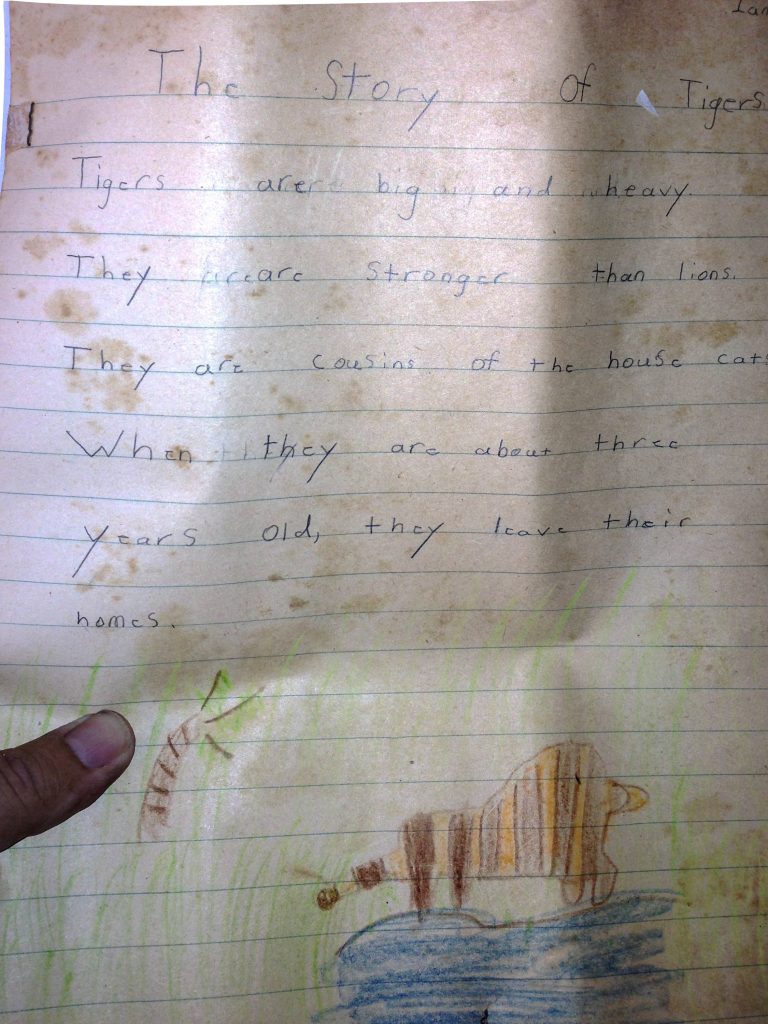 Ian
The Story Of Tigers
Tigers are big and heavy.
They are stronger than lions.
They are cousins of the house cats
When they are about three
years old, they leave their
homes.